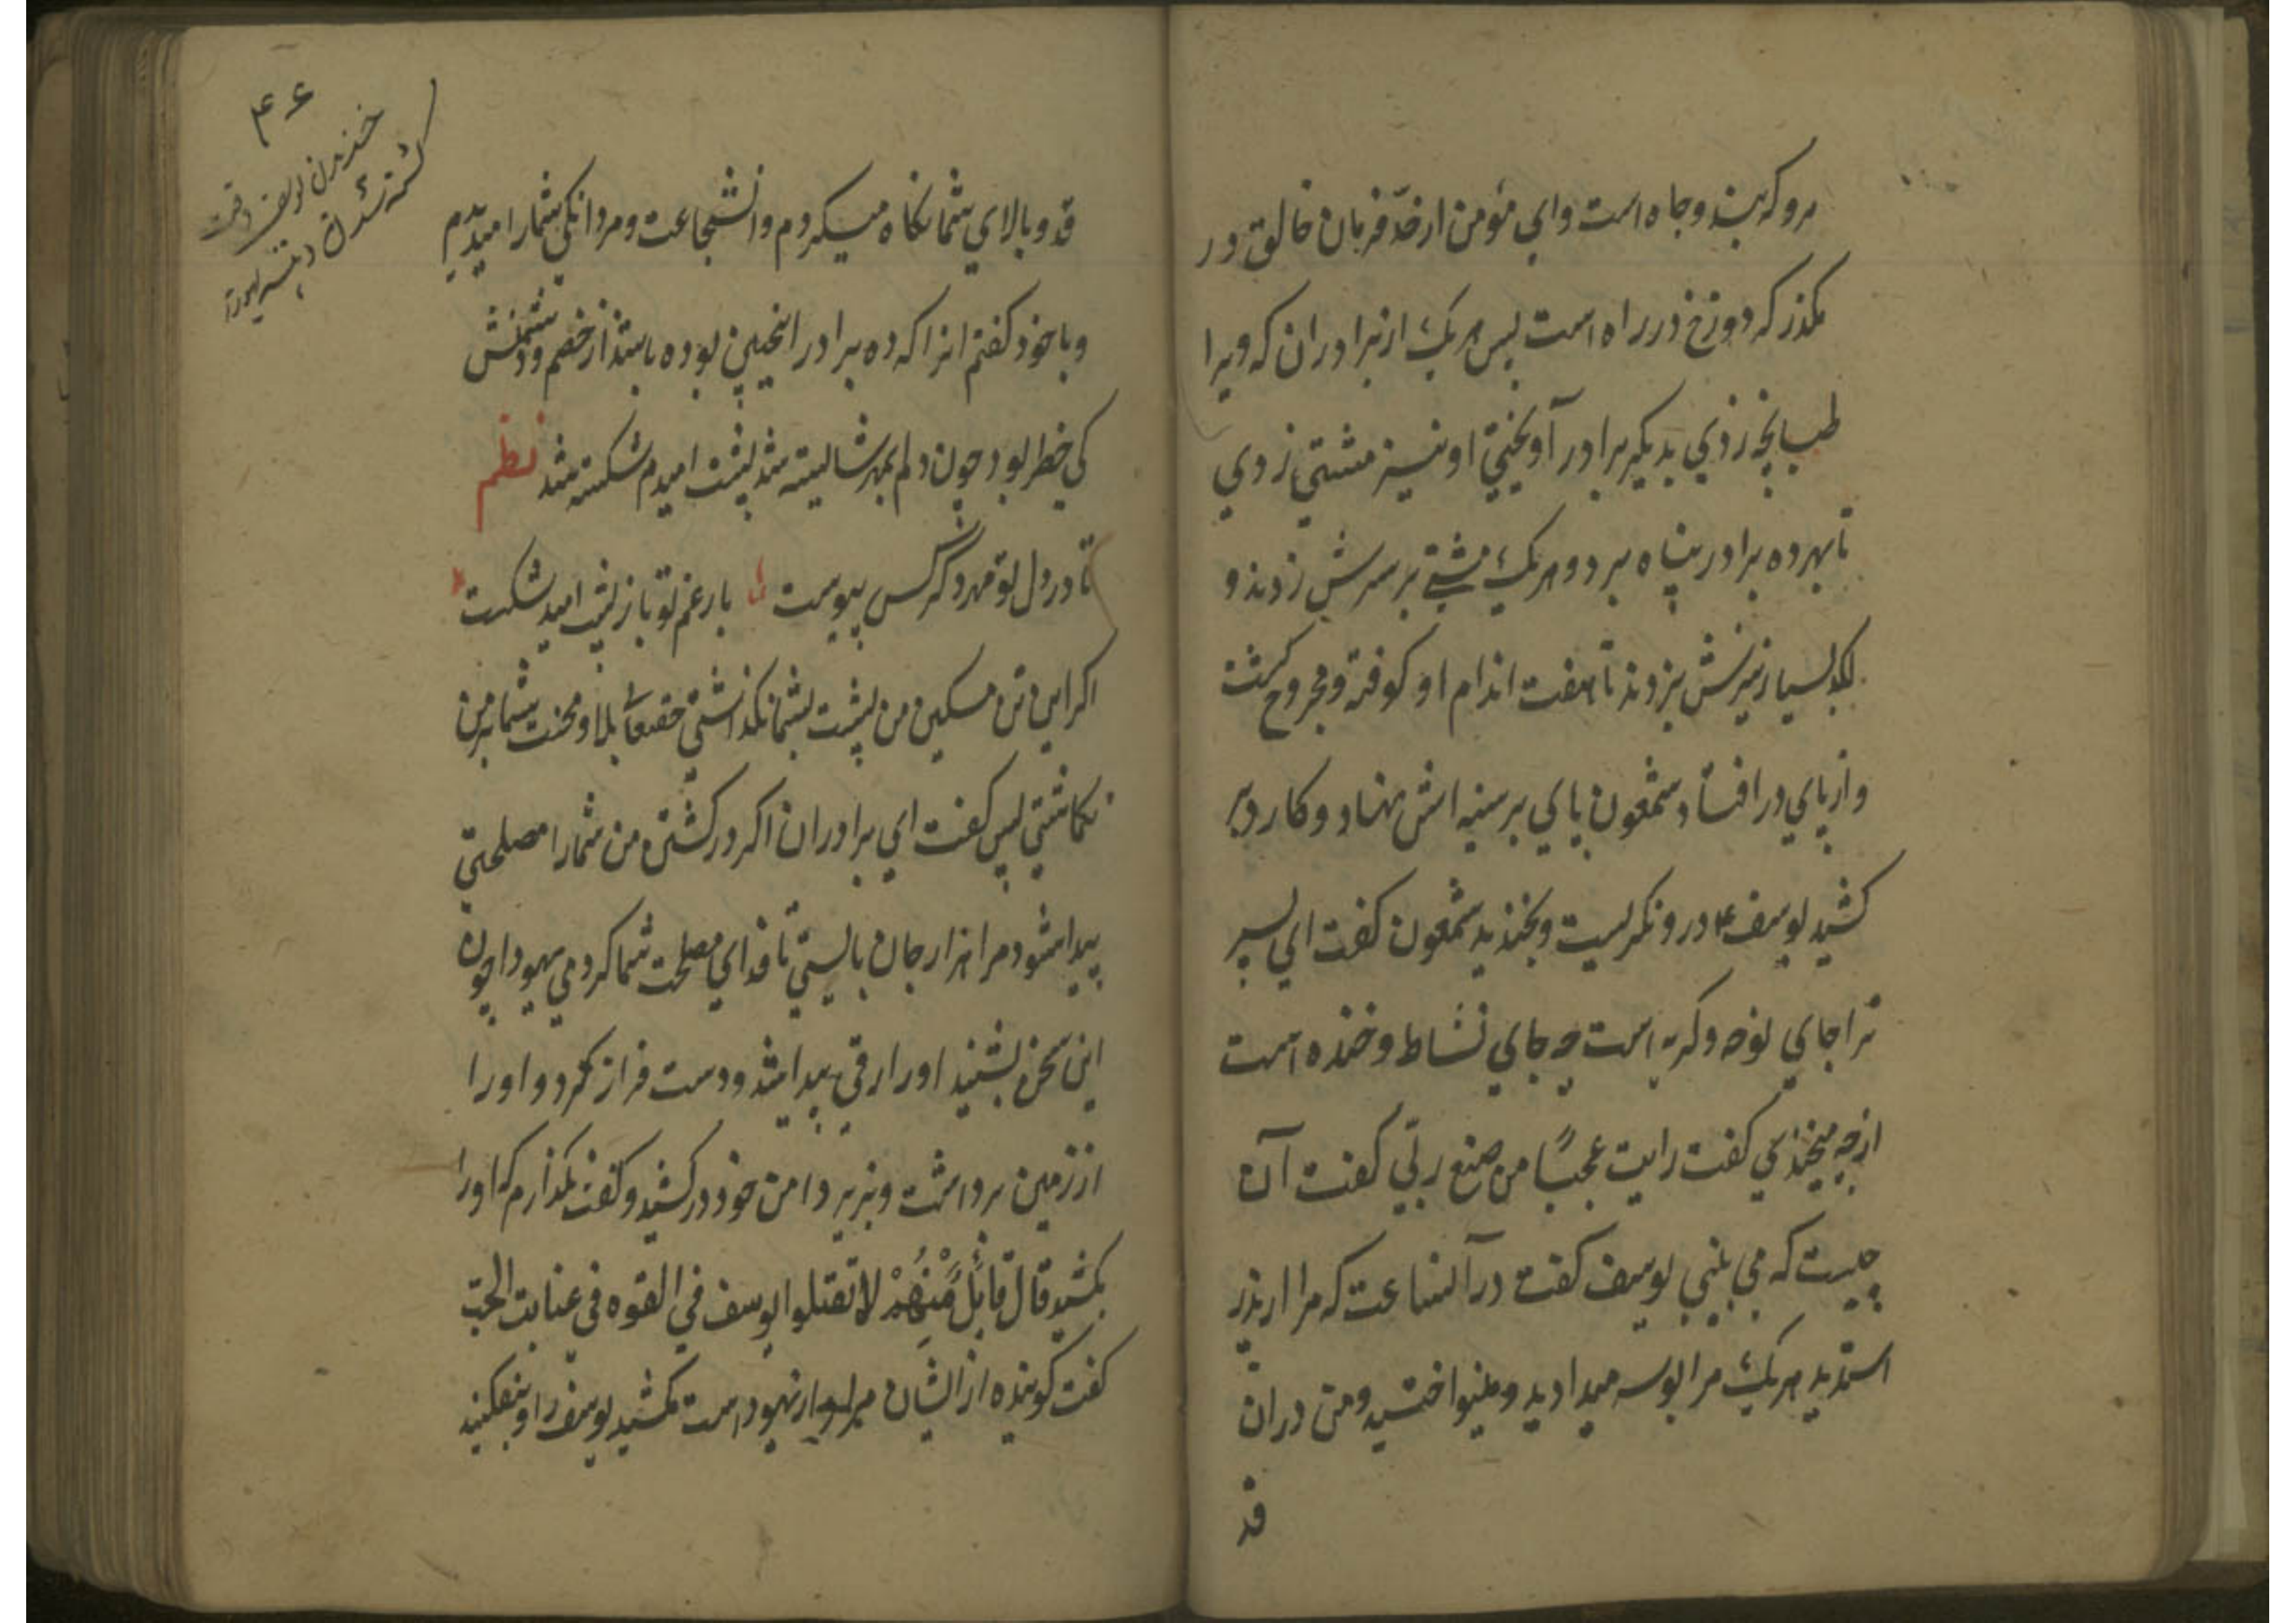 مرو که بند و چاه است و ای مؤمن از حدّ فرمان خالق در
مکذر که دوزخ در راه است پس هر یک از برادران که ویرا
طبانچه زدی بدیکر برادر آویختی او نیز مشتی زدی
تا بهر ده برادر پناه برد و هر یک مشتی بر سرش زدند و
لکد بسیار نیزش بزدند تا هفت اندام او کوفته و مجروح کشت
و از پای در افتاد شمعون پای بر سینه اش نهاد و کارد بر
کشید یوسف ع در و نکریست و بخندید شمعون کفت ای پسر
ترا جای نوحه و کریه است چه جای نشاط و خنده است
از چه میخندی کفت رایت عجبًا من صنع ربّی کفت آن
چیست که می بینی یوسف کفت در آنساعت که مرا از پدر
استدید هر یک مرا بوسه میدادید و مینواختید و من در ان
قد
۴۶
خندیدن یوسف وقت
کشته شدن دستِ یهودا
قد و بالای شما نکاه میکردم و انشجاعت و مردانکی شما را میدیدم
و با خود کفتم انرا که ده برادر اینچنین بوده باشند از خصم و دشمنش
کی خطر بود چون دلم بمهر شما بسته شد پشت امیدم شکسته شد نظم
تا در دل تو مهر دکر کس پیوست بار غم تو باز پشت امید شکست
اکر این تن مسکین من پشت بشما نکذاشتی حقتعالی بلا و محنت شما بر من
نکماشتی پس کفت ای برادران اکر در کشتن من شما را مصلحتی
پیدا شود مرا هزار جان بایستی تا فدای مصلحت شما کردمی یهودا چون
این سخن بشنید او را رقی پیدا شد و دست فراز کرد و او را
از زمین برداشت و بزیر دامن خود در کشید و کفت نکذارم که او را
بکشید قال قائلٌ مِّنْهُمْ لا تقتلوا یوسف فی القوه فی غیابت الجبّ
کفت کوینده از ایشان مراد از یهود است مکشید یوسف را و بیفکنید